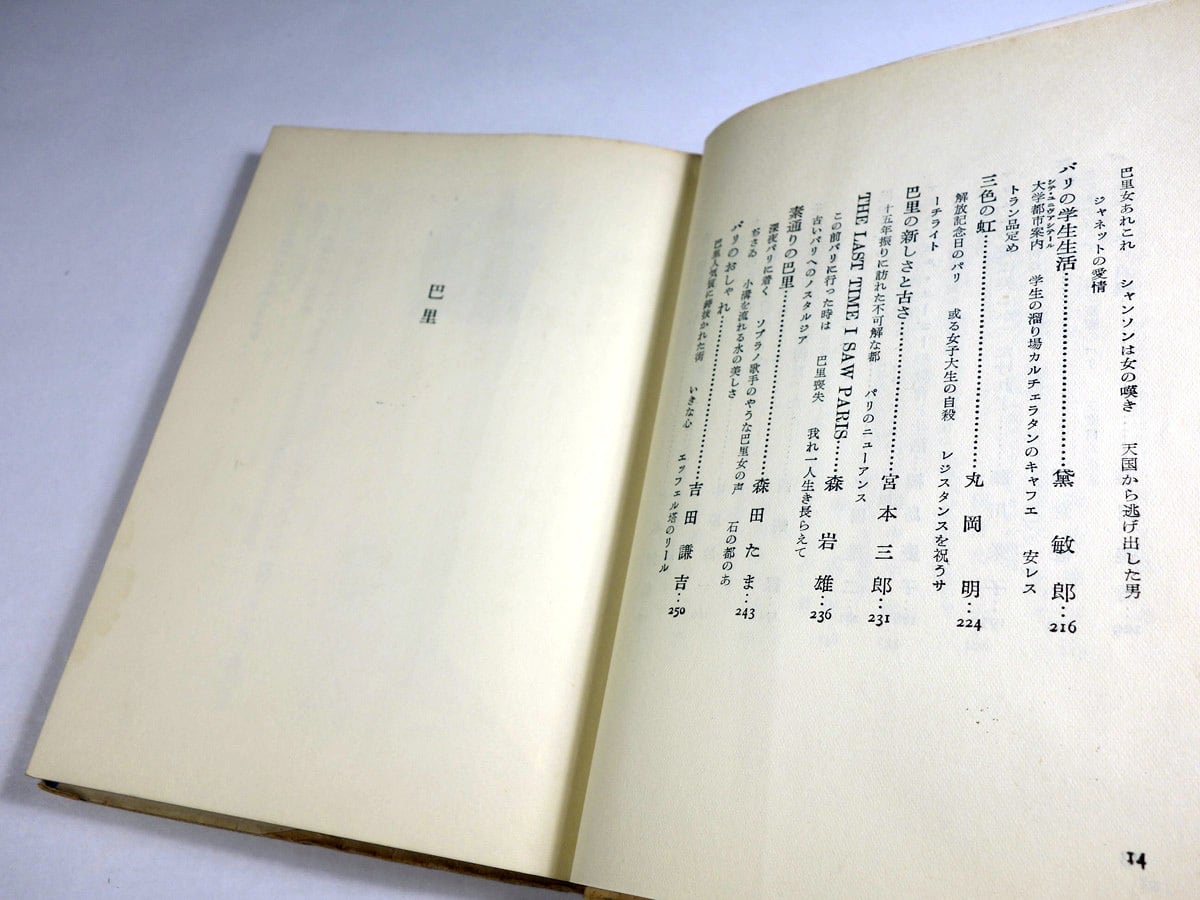 巴里女あれこれ　シャンソンは女の嘆き　天国から逃げ出した男
ジャネットの愛情
パリの学生生活…………黛　敏　郎…216
大学都市案内　学生の溜り場カルチェラタンのキャフエ　安レス
シテ・ユニヴァシテール
トラン品定め
三色の虹…………丸　岡　明…224
解放記念日のパリ　或る女子大生の自殺　レジスタンスを祝うサ
ーチライト
巴里の新しさと古さ…………宮　本　三　郎…231
十五年振りに訪れた不可解な都　パリのニューアンス
THE LAST TIME I SAW PARIS……森　岩　雄…236
この前パリに行った時は　巴里喪失　我れ一人生き長らえて
古いパリへのノスタルジア
素通りの巴里…………森　田　た　ま…243
深夜パリに着く　ソプラノ歌手のやうな巴里女の声　石の都のあ
ぢさゐ　小溝を流れる水の美しさ
パリのおしゃれ…………吉　田　謙　吉…250
巴里人気質に裏抜かれた街　いきな心　エッフェル塔のリール
14
巴里